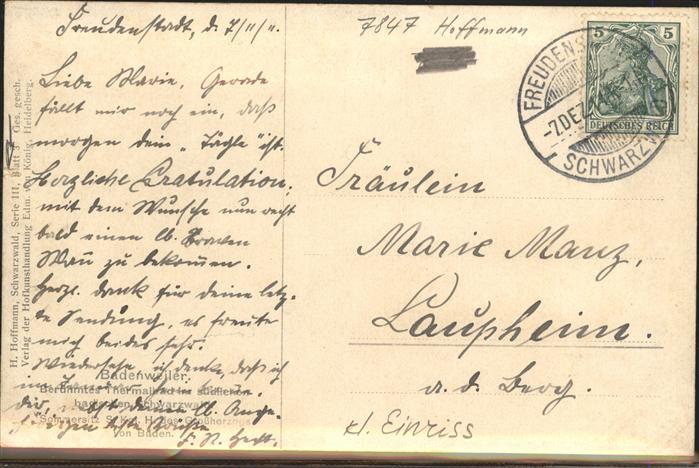 Freudenstadt, d. 7/11/11.
Liebe Marie. Gerade
fällt mir noch ein, daß
morgen dein „Tägle" ist.
Herzliche Gratulation,
mit dem Wunsche nun recht
bald einen lb. braven
Mann zu bekommen.
Herzl. Dank für deine letz-
te Sendung, es freute
mich beides sehr.
Wiedersehn ich denke, daß ich
dir, nebst deinen lb. Ange-
7847 Hoffmann
5 5
DEUTSCHES REICH
FREUDENS
-7.DEZ
SCHWARZW
Fräulein
Marie Manz,
Laupheim.
a. d. Berg.
kl. Einriss
H. Hoffmann, Schwarzwald, Serie III, Blatt 3 Ges. gesch.
Verlag der Hofkunsthandlung Edm. von König, Heidelberg.
Badenweiler.
Berühmtes Thermalbad im südlichen
badischen Schwarzwald
Sommersitz S. Kgl. H. des Großherzogs
von Baden.